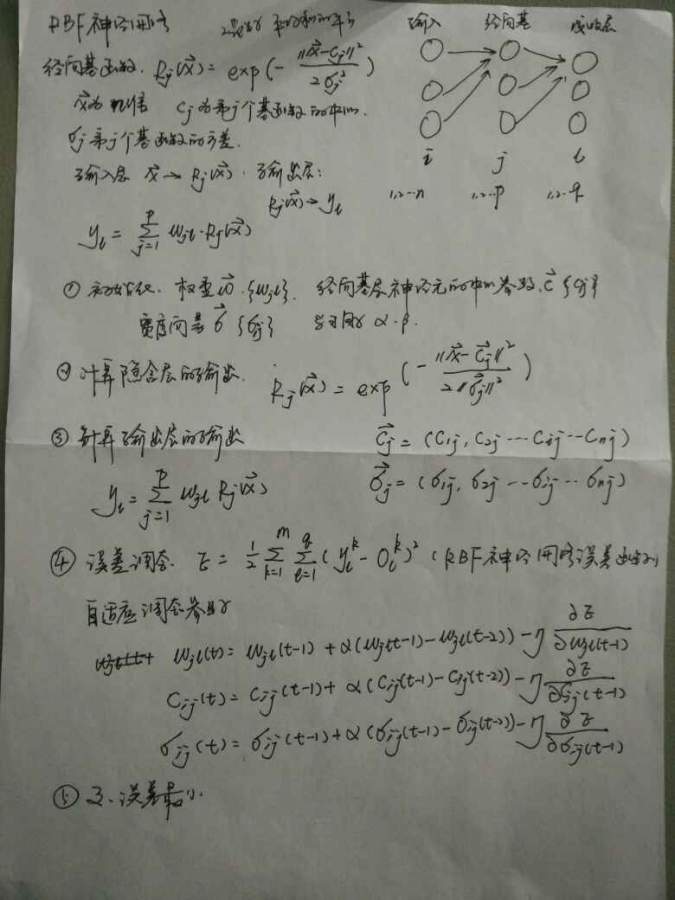 RBF神经网络
输入 径向基 输出层
径向基函数. Rj(x⃗) = exp(- ||x⃗-cj||² / 2σj²)
cj为第j个基函数的中心.
σj 第j个基函数的方差.
i j l
输入层 x⃗→Rj(x⃗). 输出层:
Rj(x⃗)→yl
1,2…n 1,2…p 1,2…q
yl = Σ_{j=1}^{p} wjl·Rj(x⃗)
① 初始化. 权重w⃗ {wjl}. 径向基层神经元的中心参数. c⃗ {cj}
宽度向量 σ⃗ {σj} 学习率 α.β.
② 计算隐含层的输出. Rj(x⃗) = exp(- ||x⃗-c⃗j||² / 2||σ⃗j||²)
③ 计算输出层的输出 c⃗j = (c1j, c2j … cij … cnj)
yl = Σ_{j=1}^{p} wjl Rj(x⃗) σ⃗j = (σ1j, σ2j … σij … σnj)
④ 误差调整. E = 1/2 Σ_{k=1}^{m} Σ_{l=1}^{q} (yl^k - Ol^k)² (RBF神经网络误差函数)
自适应调整参数
wjl(t) = wjl(t-1) + α(wjl(t-1) - wjl(t-2)) - η ∂E/∂wjl(t-1)
cij(t) = cij(t-1) + α(cij(t-1) - cij(t-2)) - η ∂E/∂cij(t-1)
σij(t) = σij(t-1) + α(σij(t-1) - σij(t-2)) - η ∂E/∂σij(t-1)
⑤ 误差最小.